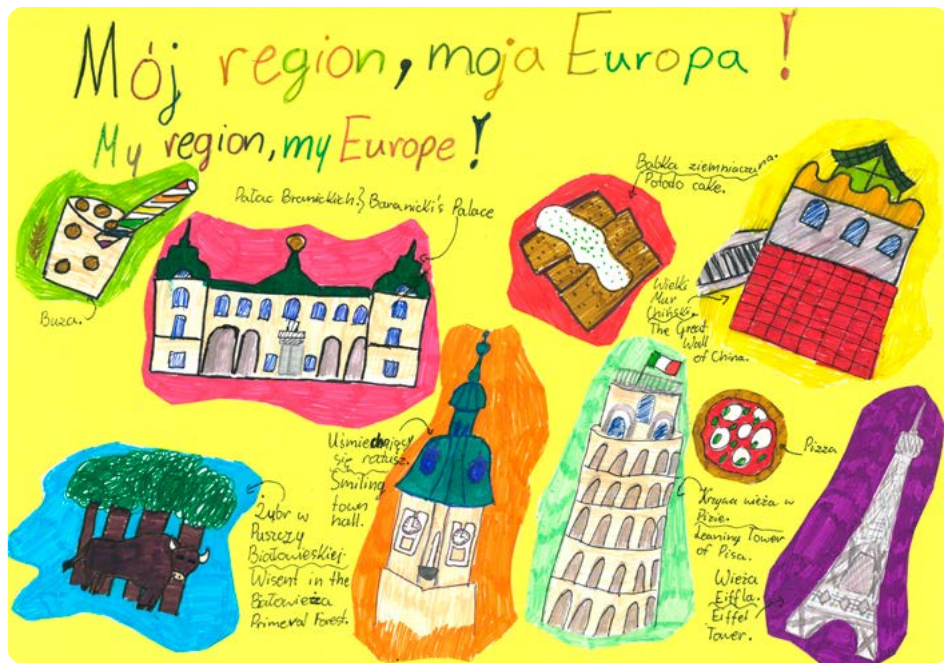 Mój region, moja Europa!
My region, my Europe!
Buza.
Pałac Branickich} Baranicki's Palace
Babka ziemniaczana.
Potado cake.
Wielki
Mur
Chiński.
The Great
Wall
of China.
Uśmiechający
się ratusz.
Smiling
town
hall.
Pizza
Krzywa wieża w
Pizie.
Leaning Tower
of Pisa.
Żubr w
Puszczy
Białowieskiej.
Wisent in the
Białowieża
Primeval Forest.
Wieża
Eiffla.
Eiffel
Tower.